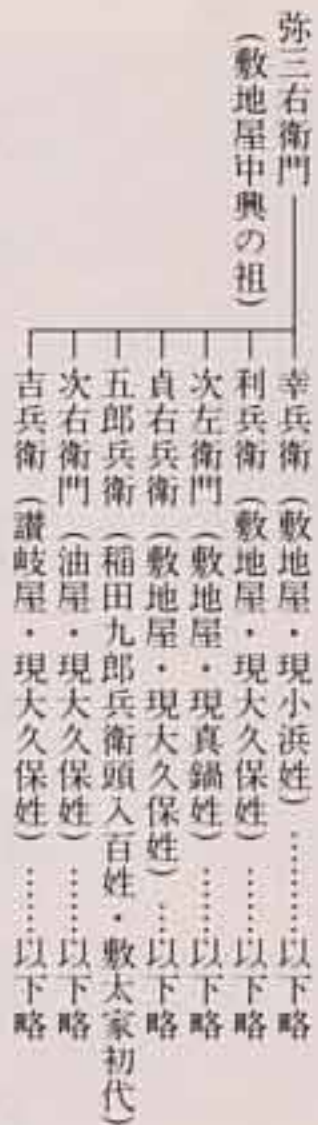 弥三右衛門
(敷地屋中興の祖)
幸兵衛(敷地屋・現小浜姓)…………以下略
利兵衛(敷地屋・現大久保姓)………以下略
次左衛門(敷地屋・現真鍋姓)………以下略
貞右兵衛(敷地屋・現大久保姓)……以下略
五郎兵衛(稲田九郎兵衛頭入百姓・敷太家初代)
次右衛門(油屋・現大久保姓)………以下略
吉兵衛(讃岐屋・現大久保姓)………以下略